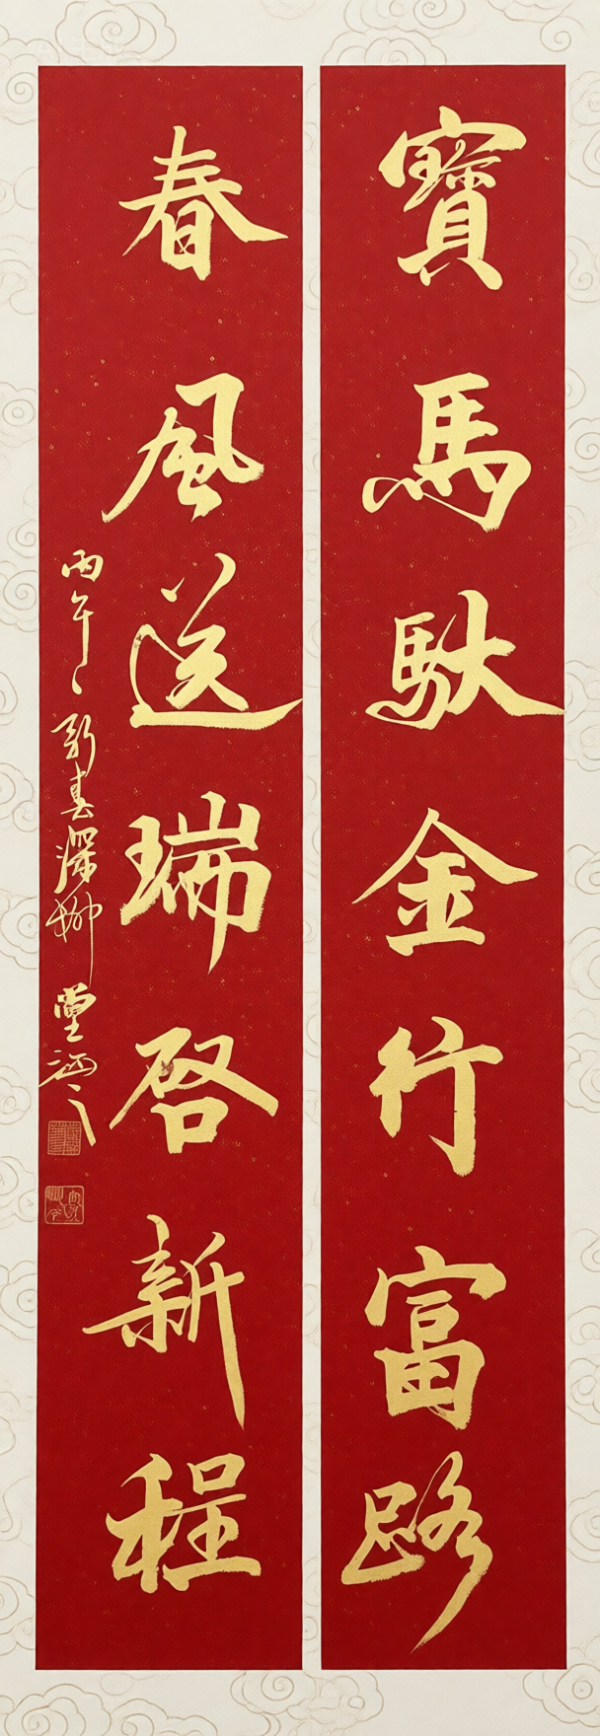 寶馬馱金行富路
春風送瑞啓新程
丙午新春